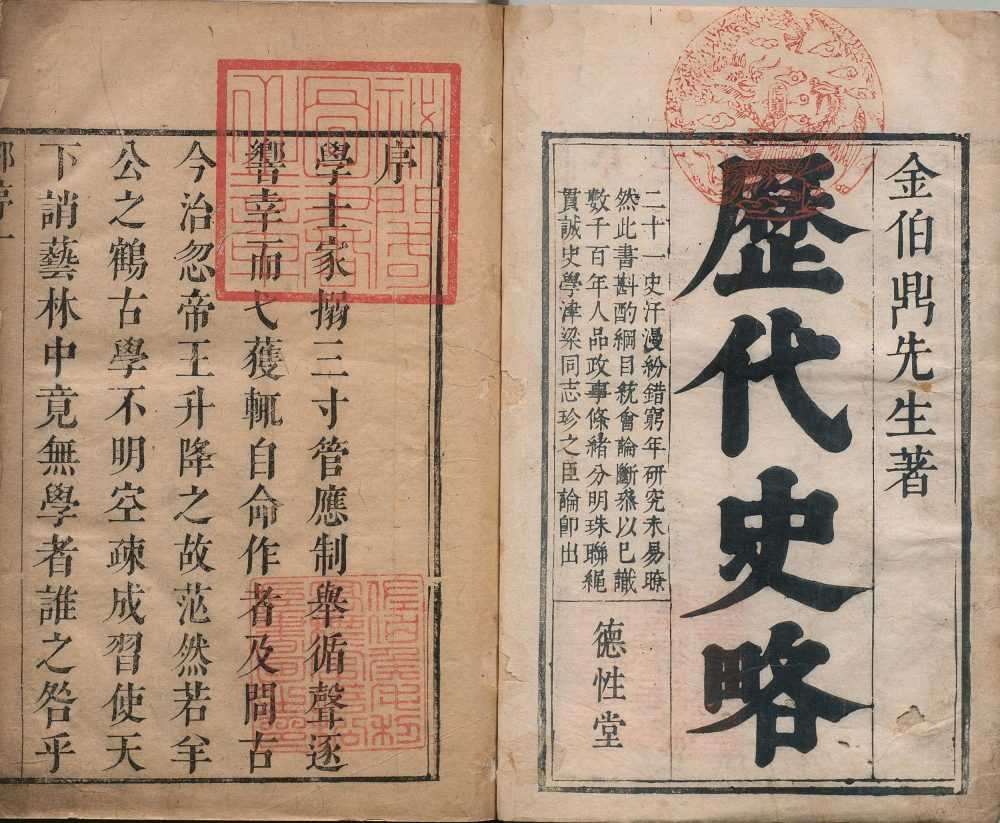 金伯鼎先生著
歷代史略
二十一史汗漫紛錯窮年研究未易瞭
然此書斟酌綱目統會論斷叅以已識
數千百年人品政事條緒分明珠聯繩
貫誠史學津梁同志珍之臣論卽出
德性堂
序
學士家搦三寸管應制舉循聲逐
響幸而弋獲輒自命作者及問古
今治忽帝王升降之故茫然若羊
公之鶴古學不明空疎成習使天
下誚藝林中竟無學者誰之咎乎